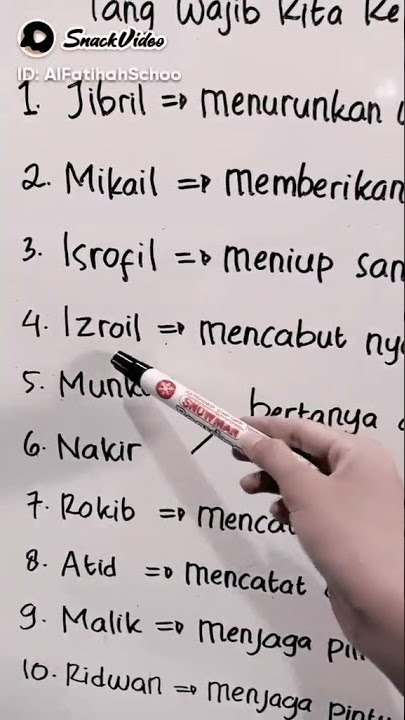 SnackVideo
ID: AlFatihahSchoo
Yang Wajib Kita Ke
1. Jibril => menurunkan
2. Mikail => memberikan
3. Isrofil => meniup san
4. Izroil => mencabut ny
5. Munk
bertanya
6. Nakir
7. Rokib => mencat
8. Atid => mencatat
9. Malik => menjaga pin
10. Ridwan => menjaga pintu
SNOWMAN